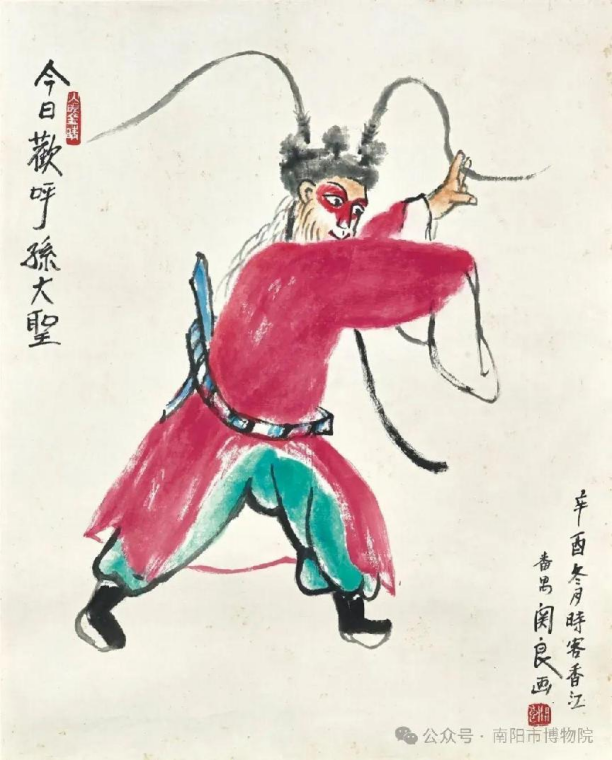 今日歡呼孫大聖
辛酉冬月時客香江
番禺関良画
公众号·南阳市博物院